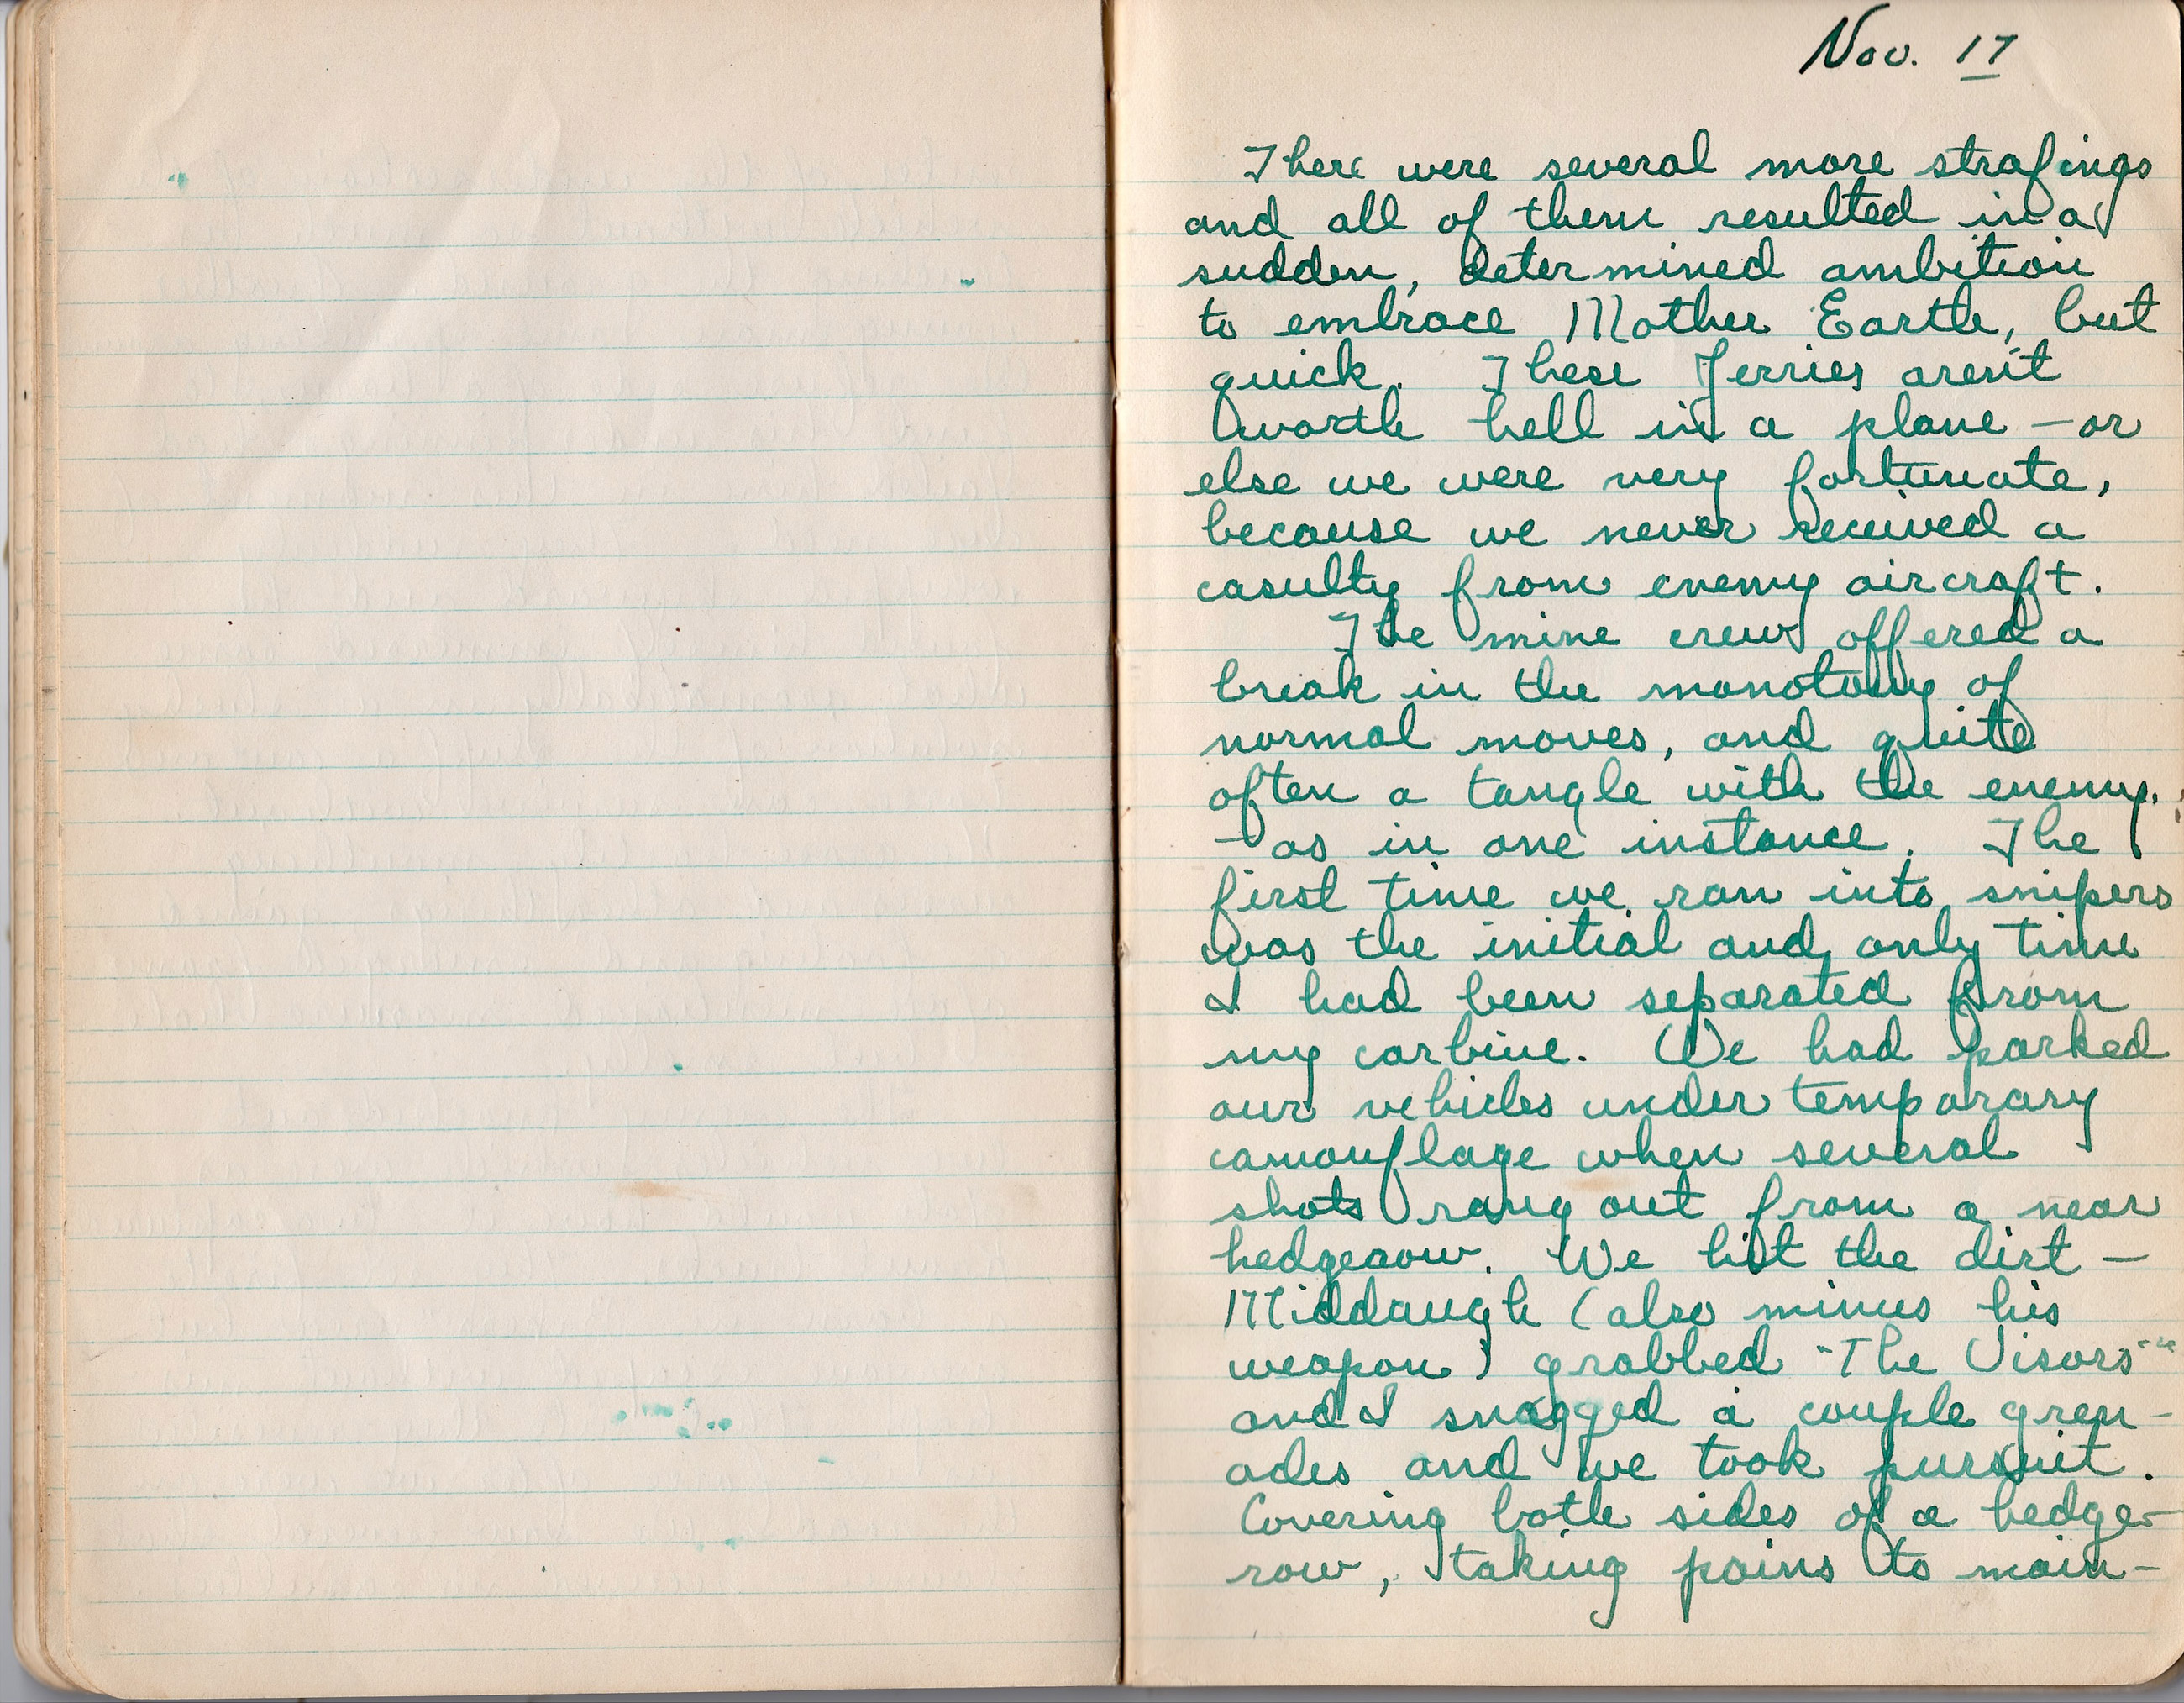 Nov. 17
There were several more strafings
and all of them resulted in a
sudden, determined ambition
to embrace Mother Earth, but
quick. These Jerries aren't
worth hell in a plane – or
else we were very fortunate,
because we never received a
casulty from enemy aircraft.
The mine crew offered a
break in the monotony of
normal moves, and quite
often a tangle with the enemy.
– as in one instance. The
first time we ran into snipers
was the initial and only time
I had been separated from
my carbine. We had parked
our vehicles under temporary
camouflage when several
shots rang out from a near
hedgerow. We hit the dirt –
Middaugh (also minus his
weapon) grabbed "The Visors"
and I snagged a couple gren-
ades and we took pursuit.
Covering both sides of a hedge-
row, taking pains to main-